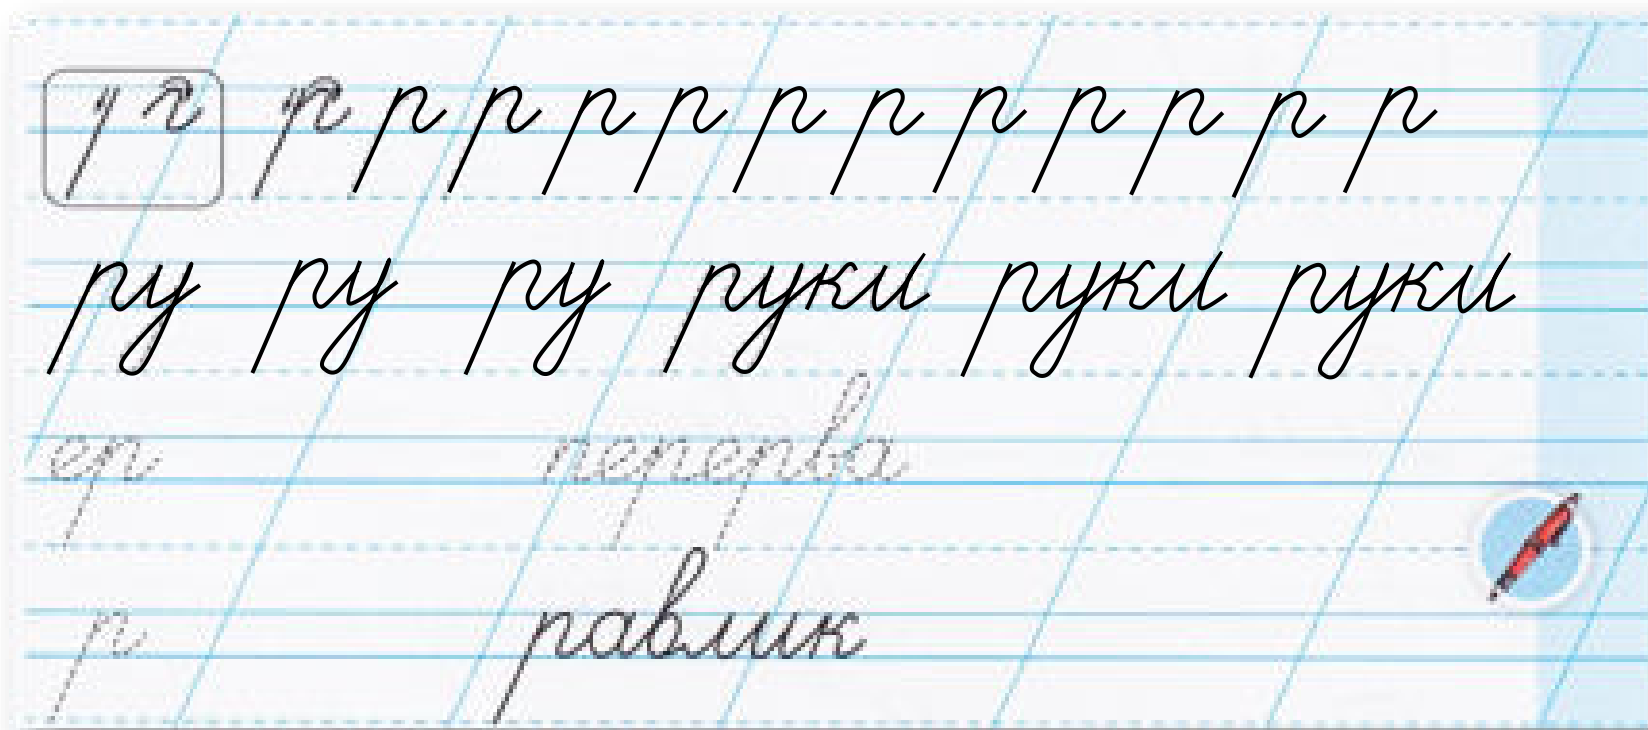 р р р р р р р р р р р р
ру ру ру руки руки руки
ер перерва
р равлик